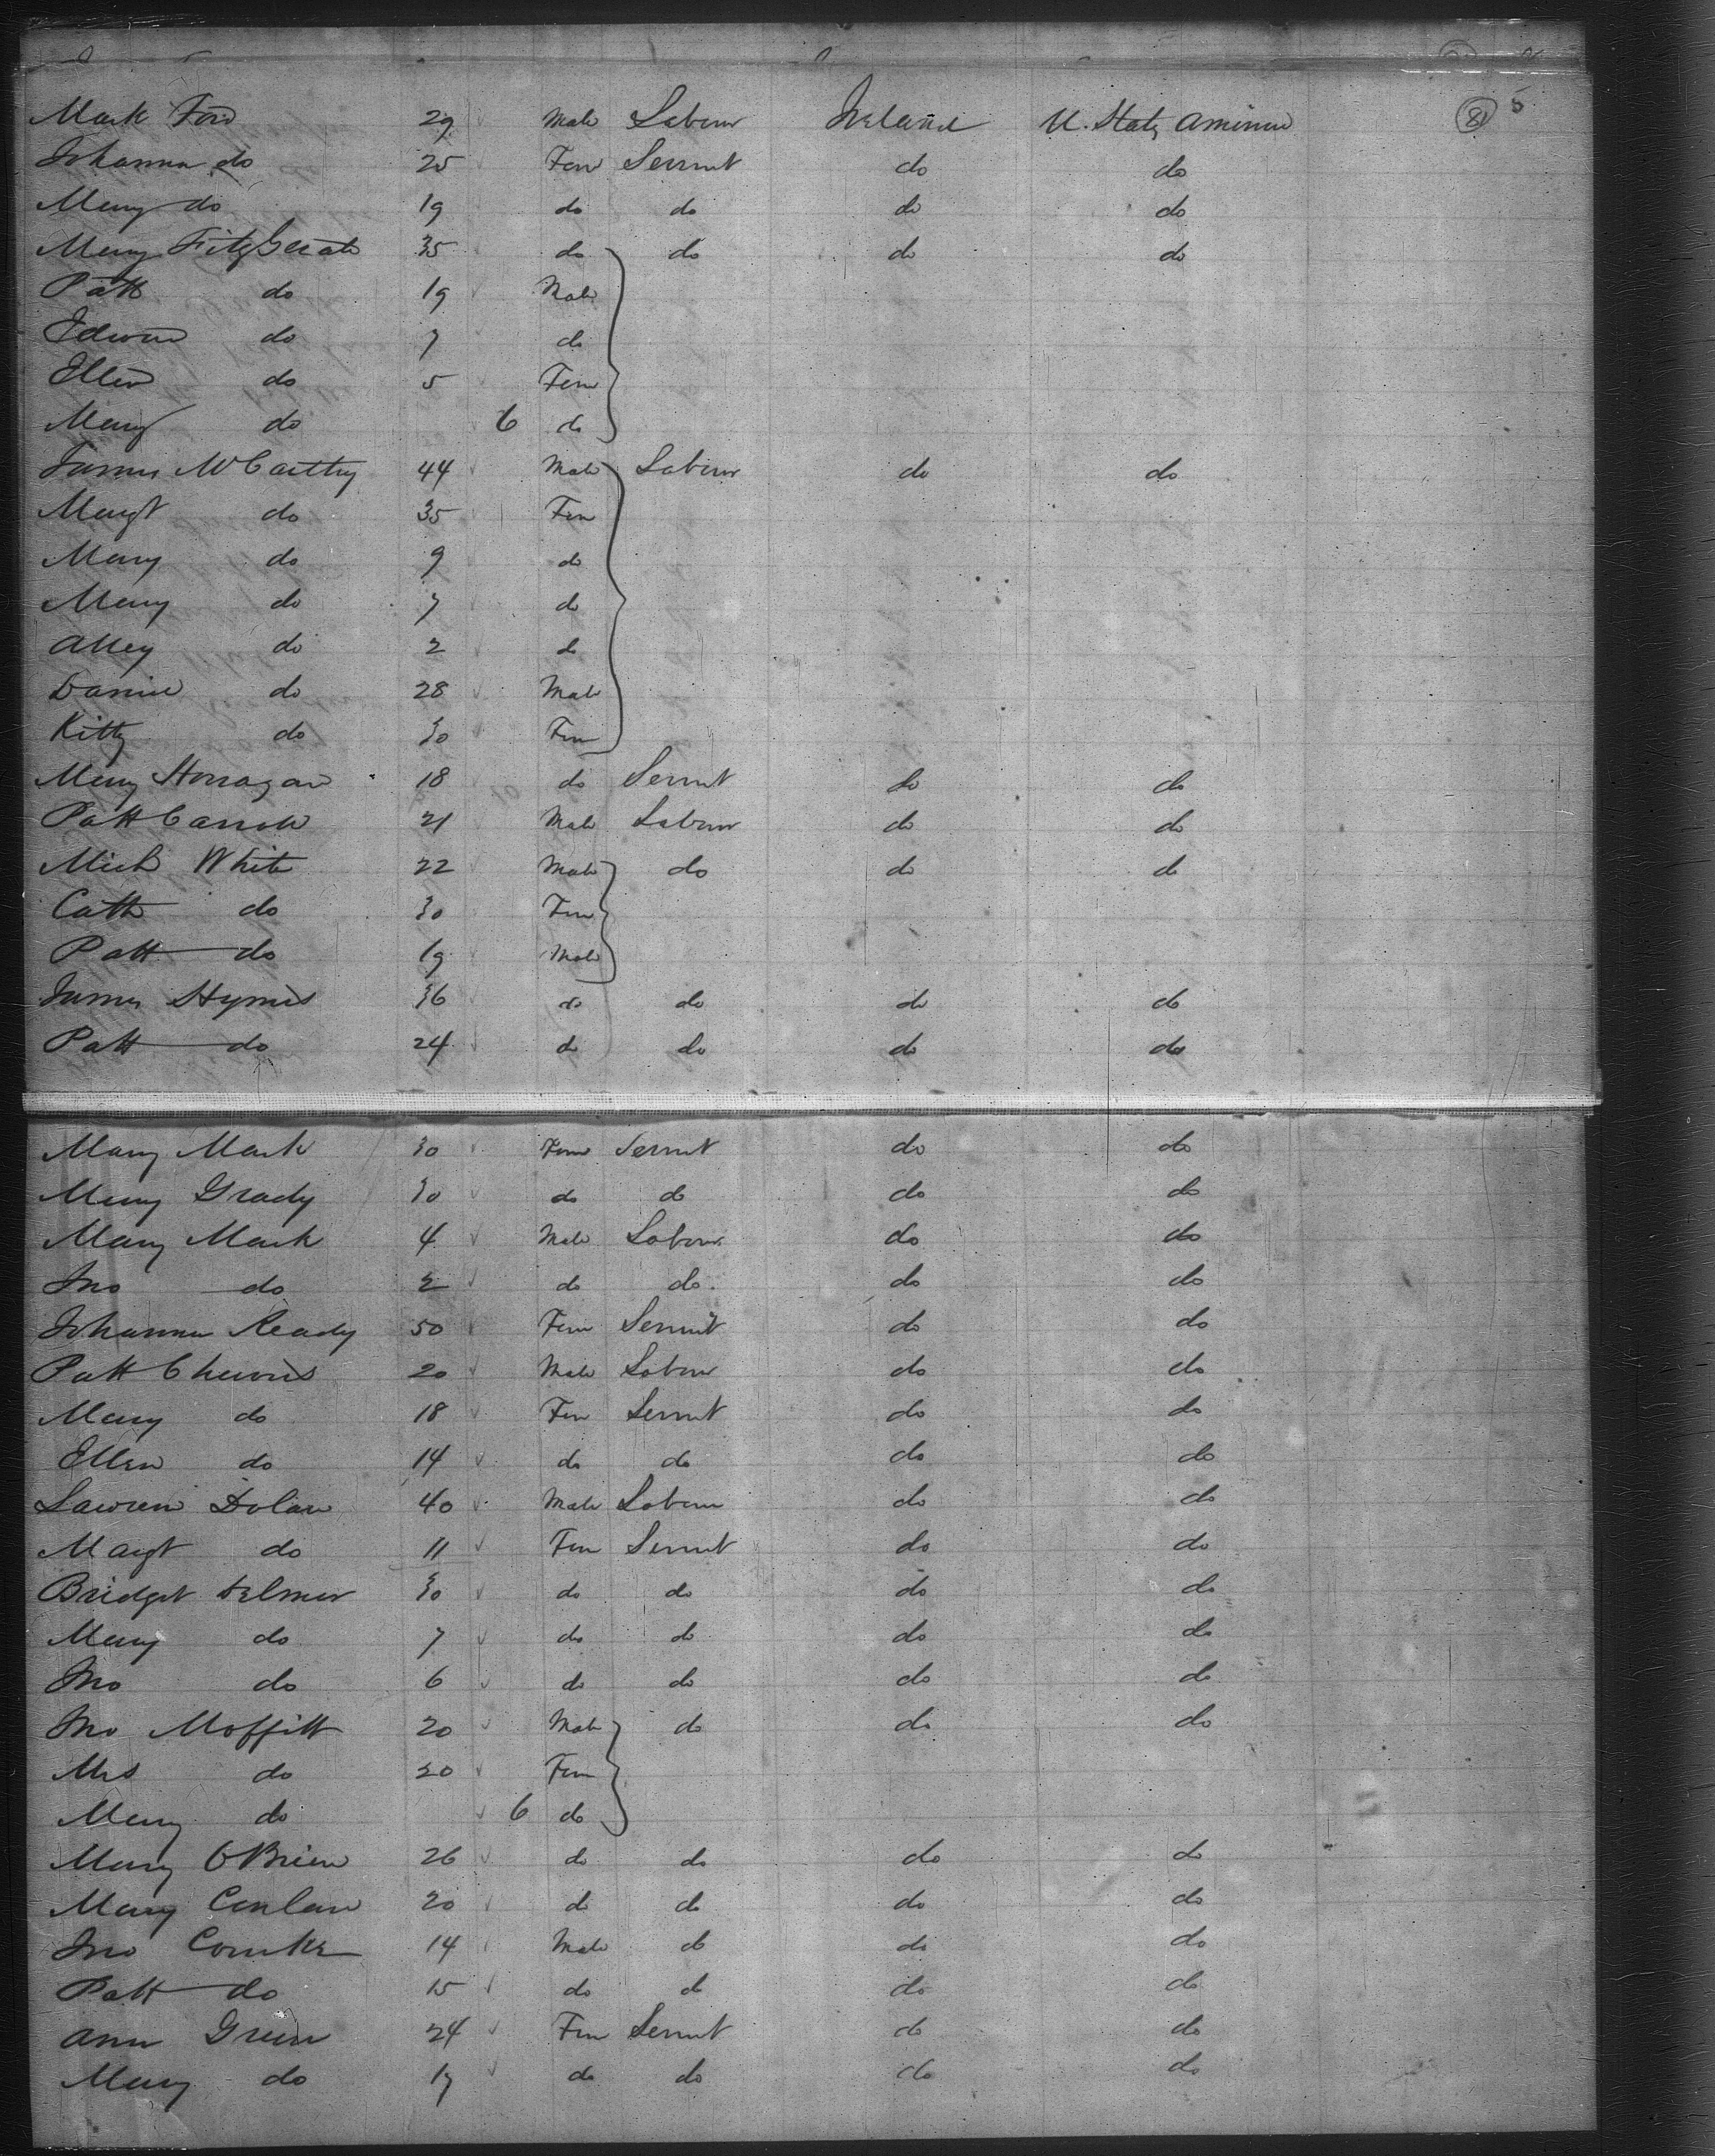 Mark Ford 29 Male Labour Ireland U. States America 8 5
Johanna do 25 Fem Servnt do do
Mary do 19 do do do do
Mary FitzGerald 35 do do do do
Patt do 19 Male
Edward do 7 do
Ellen do 5 Fem
Mary do 6 do
James McCarthy 44 Male Labour do do
Margt do 35 Fem
Mary do 9 do
Mary do 7 do
do 2 do
Daniel do 28 Male
Kitty do 30 Fem
Mary Horragan 18 do Servnt do do
Patt Carroll 21 Male Labour do do
Mich White 22 Male do do do
Cath do 30 Fem
Patt do 19 Male
James Hymes 36 do do do do
Patt do 24 do do do do
Mary Mark 30 Fem Servnt do do
Mary Grady 30 do do do do
Mary Mark 4 Male Labour do do
Jno do 2 do do do do
Johanna Ready 50 Fem Servnt do do
Patt 20 Male Labour do do
Mary do 18 Fem Servnt do do
Ellen do 14 do do do do
Lawren Dolan 40 Male Labour do do
Margt do 11 Fem Servnt do do
Bridget Delmer 30 do do do do
Mary do 7 do do do do
Jno do 6 do do do do
Jno Moffitt 20 Male do do do
Mrs do 20 Fem
Mary do 6 do
Mary OBrien 26 do do do do
Mary Conlan 20 do do do do
Jno 14 Male do do do
Patt do 15 do do do do
Ann Green 24 Fem Servnt do do
Mary do 17 do do do do